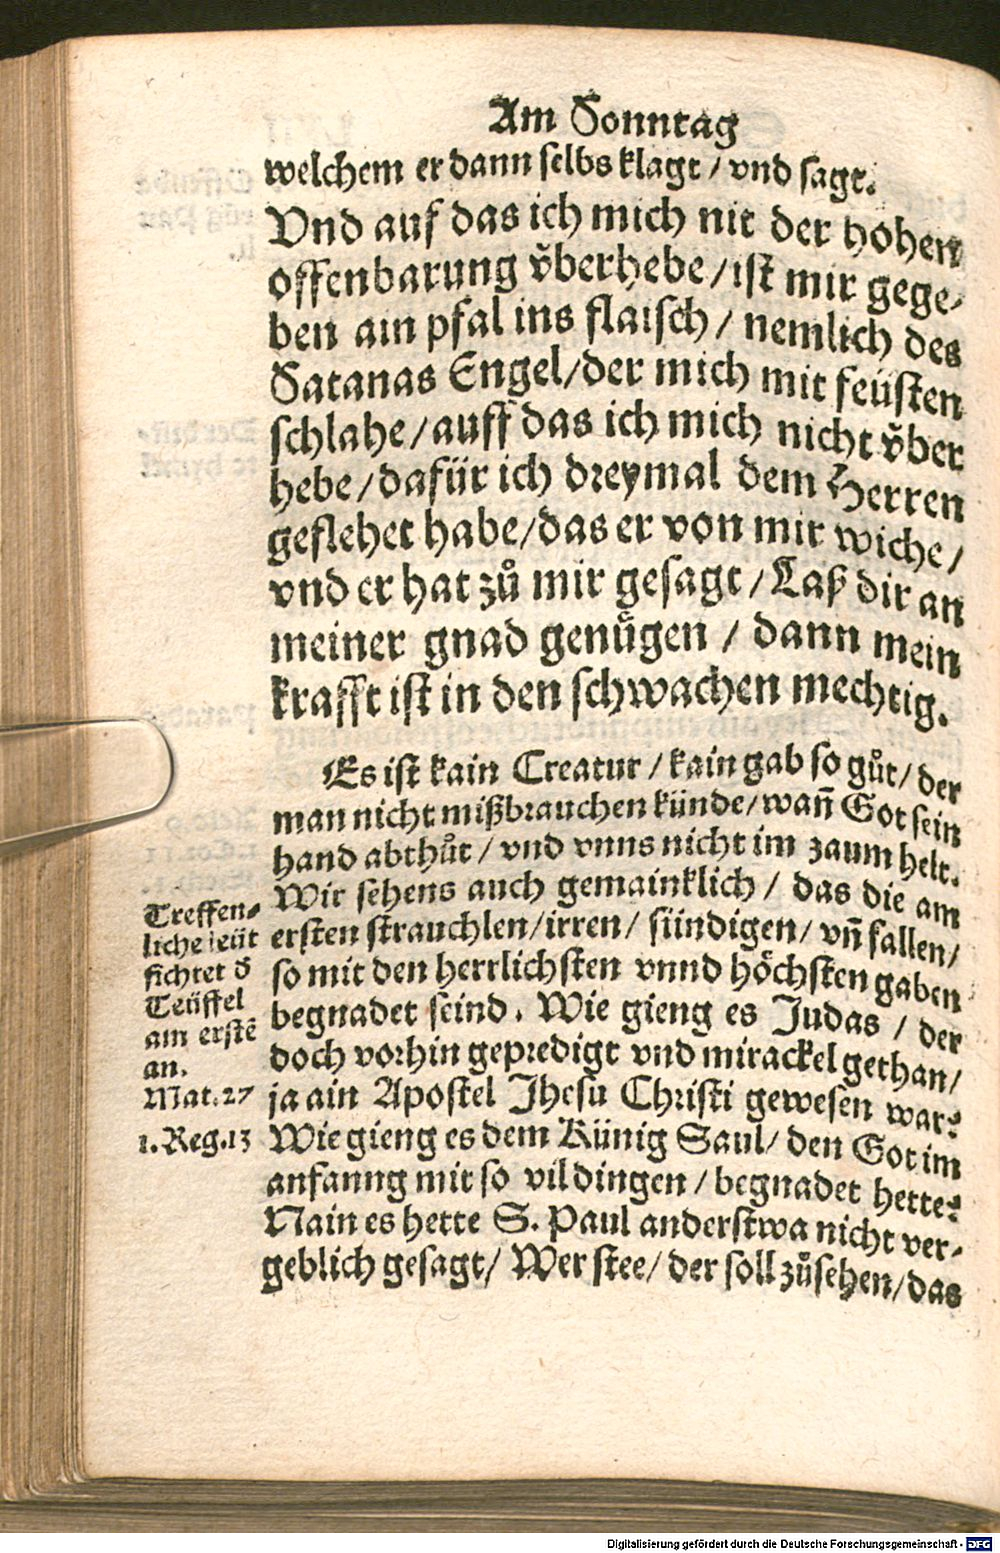 Am Sonntag
welchem er dann selbs klagt / vnd sagt.
Vnd auf das ich mich nit der hohen
offenbarung vͤberhebe / ist mir gege⸗
ben ain pfal ins flaisch / nemlich des
Satanas Engel / der mich mit feüsten
schlahe / auff das ich mich nicht vͤber
hebe / dafür ich dreymal dem Herren
geflehet habe / das er von mir wiche /
vnd er hat zů mir gesagt / Laß dir an
meiner gnad genuͤgen / dann mein
krafft ist in den schwachen mechtig.
Es ist kain Creatur / kain gab so gůt / der
man nicht mißbrauchen künde / wañ Got sein
hand abthůt / vnd vnns nicht im zaum helt.
Wir sehens auch gemainklich / das die am
ersten strauchlen / irren / sündigen / vñ fallen /
so mit den herrlichsten vnnd hoͤchsten gaben
begnadet seind. Wie gieng es Judas / der
doch vorhin gepredigt vnd mirackel gethan /
ja ain Apostel Jhesu Christi gewesen war?
Wie gieng es dem Künig Saul / den Got im
anfanng mit so vil dingen / begnadet hette?
Nain es hette S. Paul anderstwa nicht ver⸗
geblich gesagt / Wer stee / der soll zůsehen / das
Treffen⸗
liche leüt
fichtet d̕
Teüffel
am erstẽ
an.
Mat.27
1.Reg.13
Digitalisierung gefördert durch die Deutsche Forschungsgemeinschaft - DFG